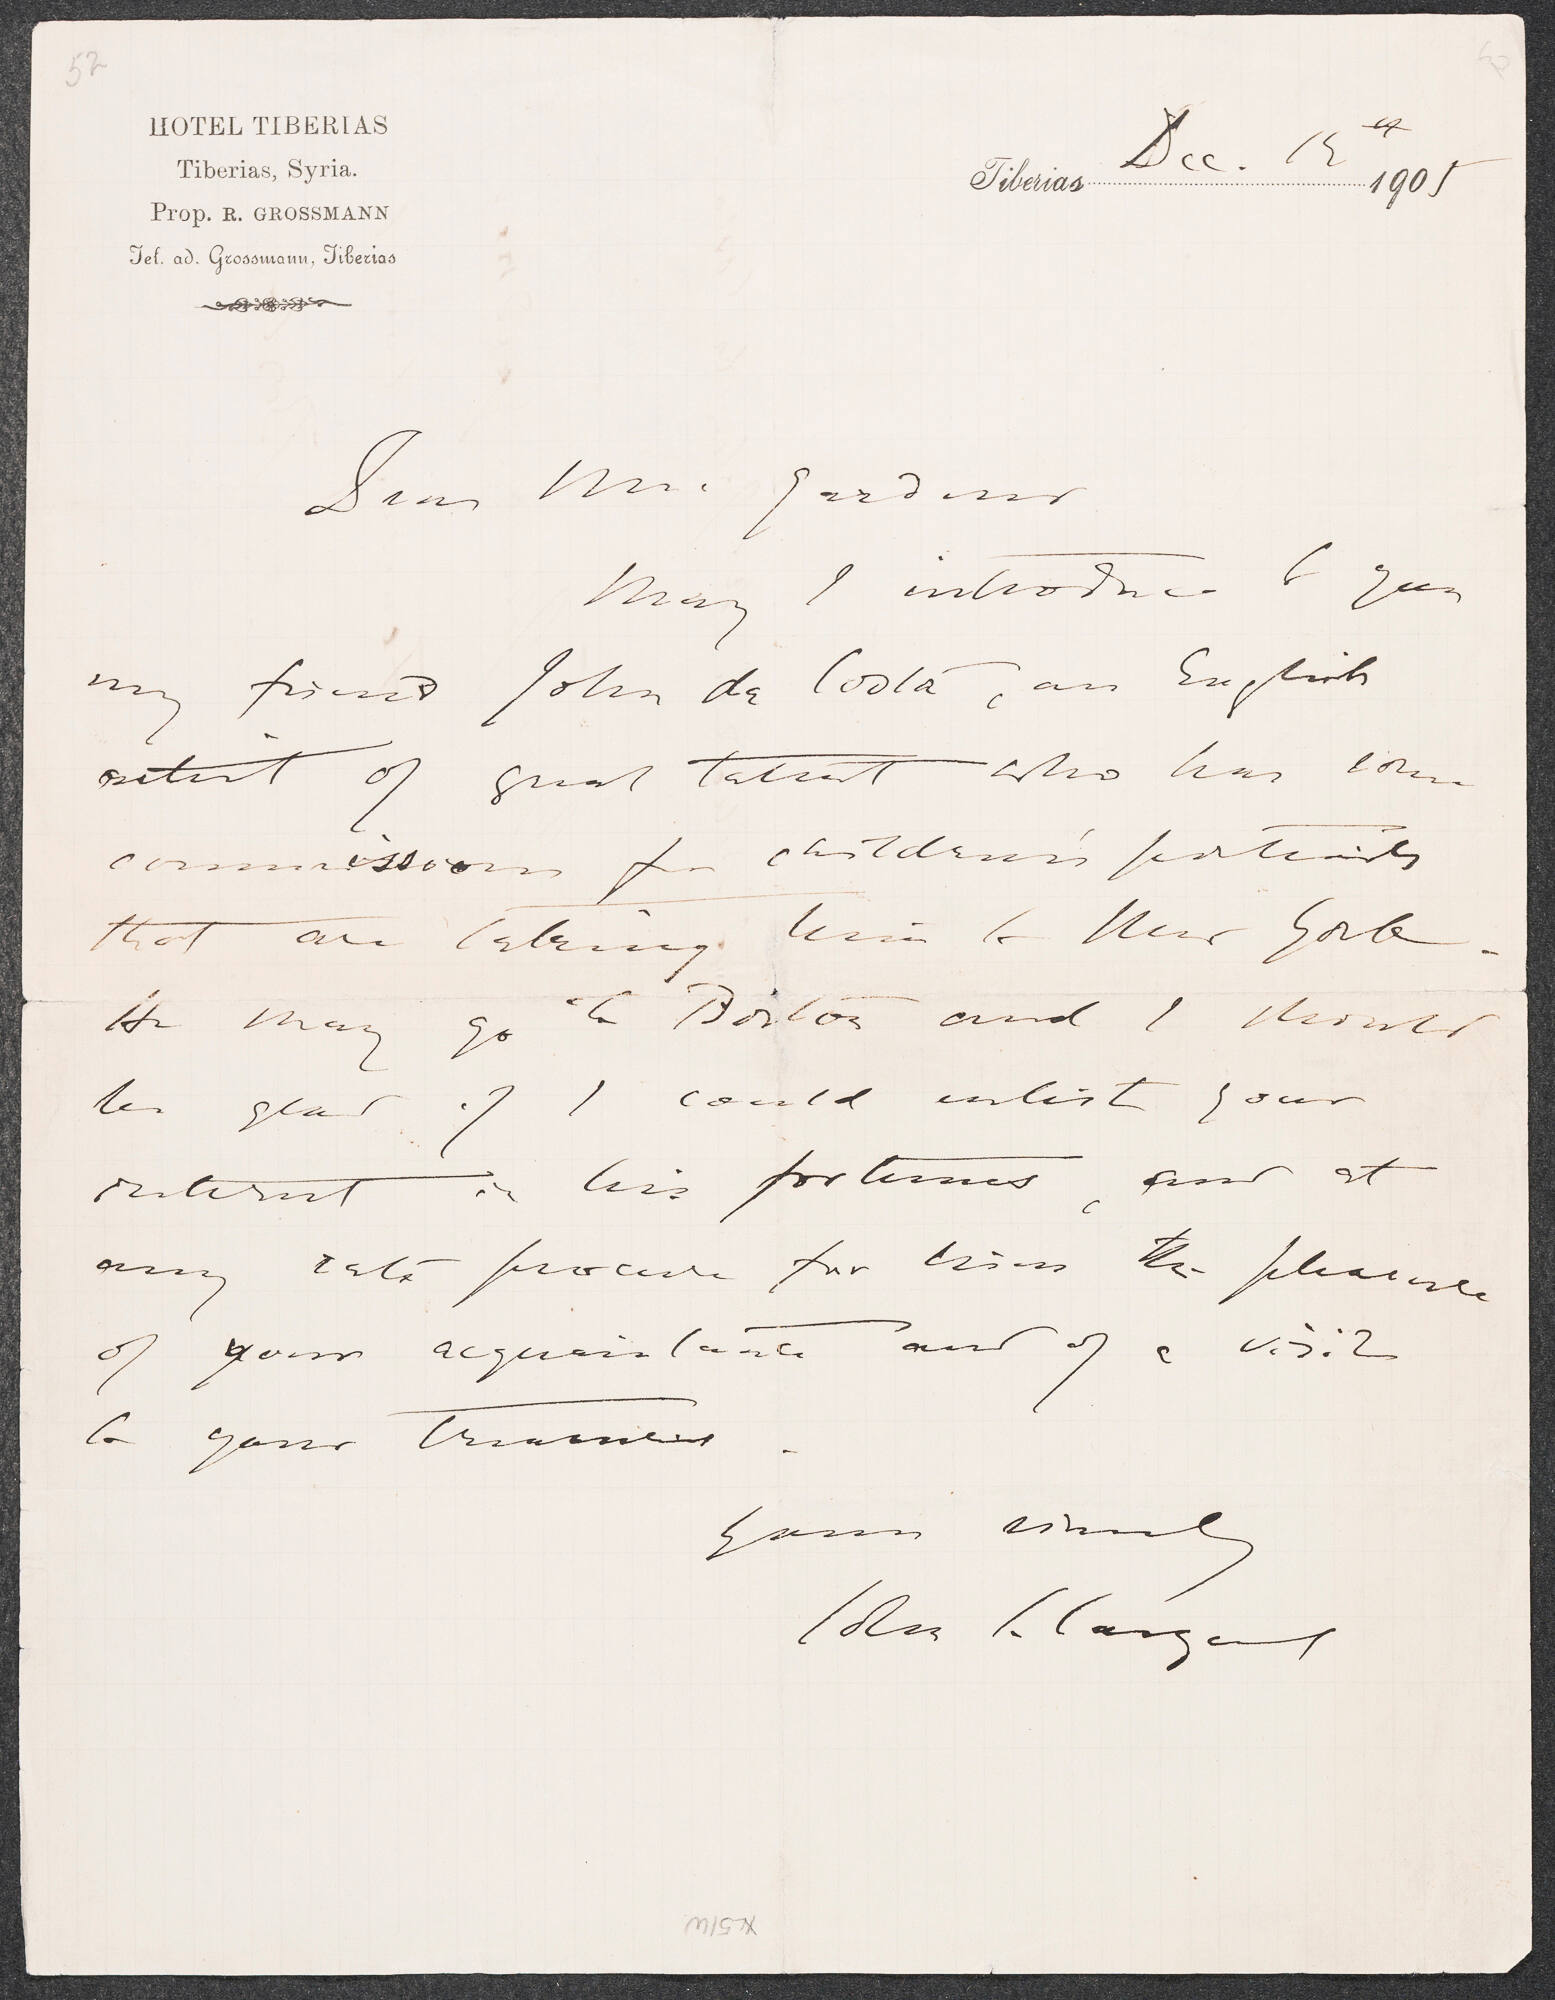 52
HOTEL TIBERIAS
Tiberias, Syria.
Prop. R. GROSSMANN
Tel. ad. Grossmann, Tiberias
Tiberias Dec. 1905
Dear Mrs. Gardner
May I introduce to you
my friend John da Costa, an English
artist of great talent who has some
commissions for children's portraits
that are taking him to New York.
He may go to Boston and I should
be glad if I could enlist your
interest in his fortunes, and at
any rate procure for him the pleasure
of your acquaintance and of a visit
to your treasures.
Yours sincerely
John S. Sargent